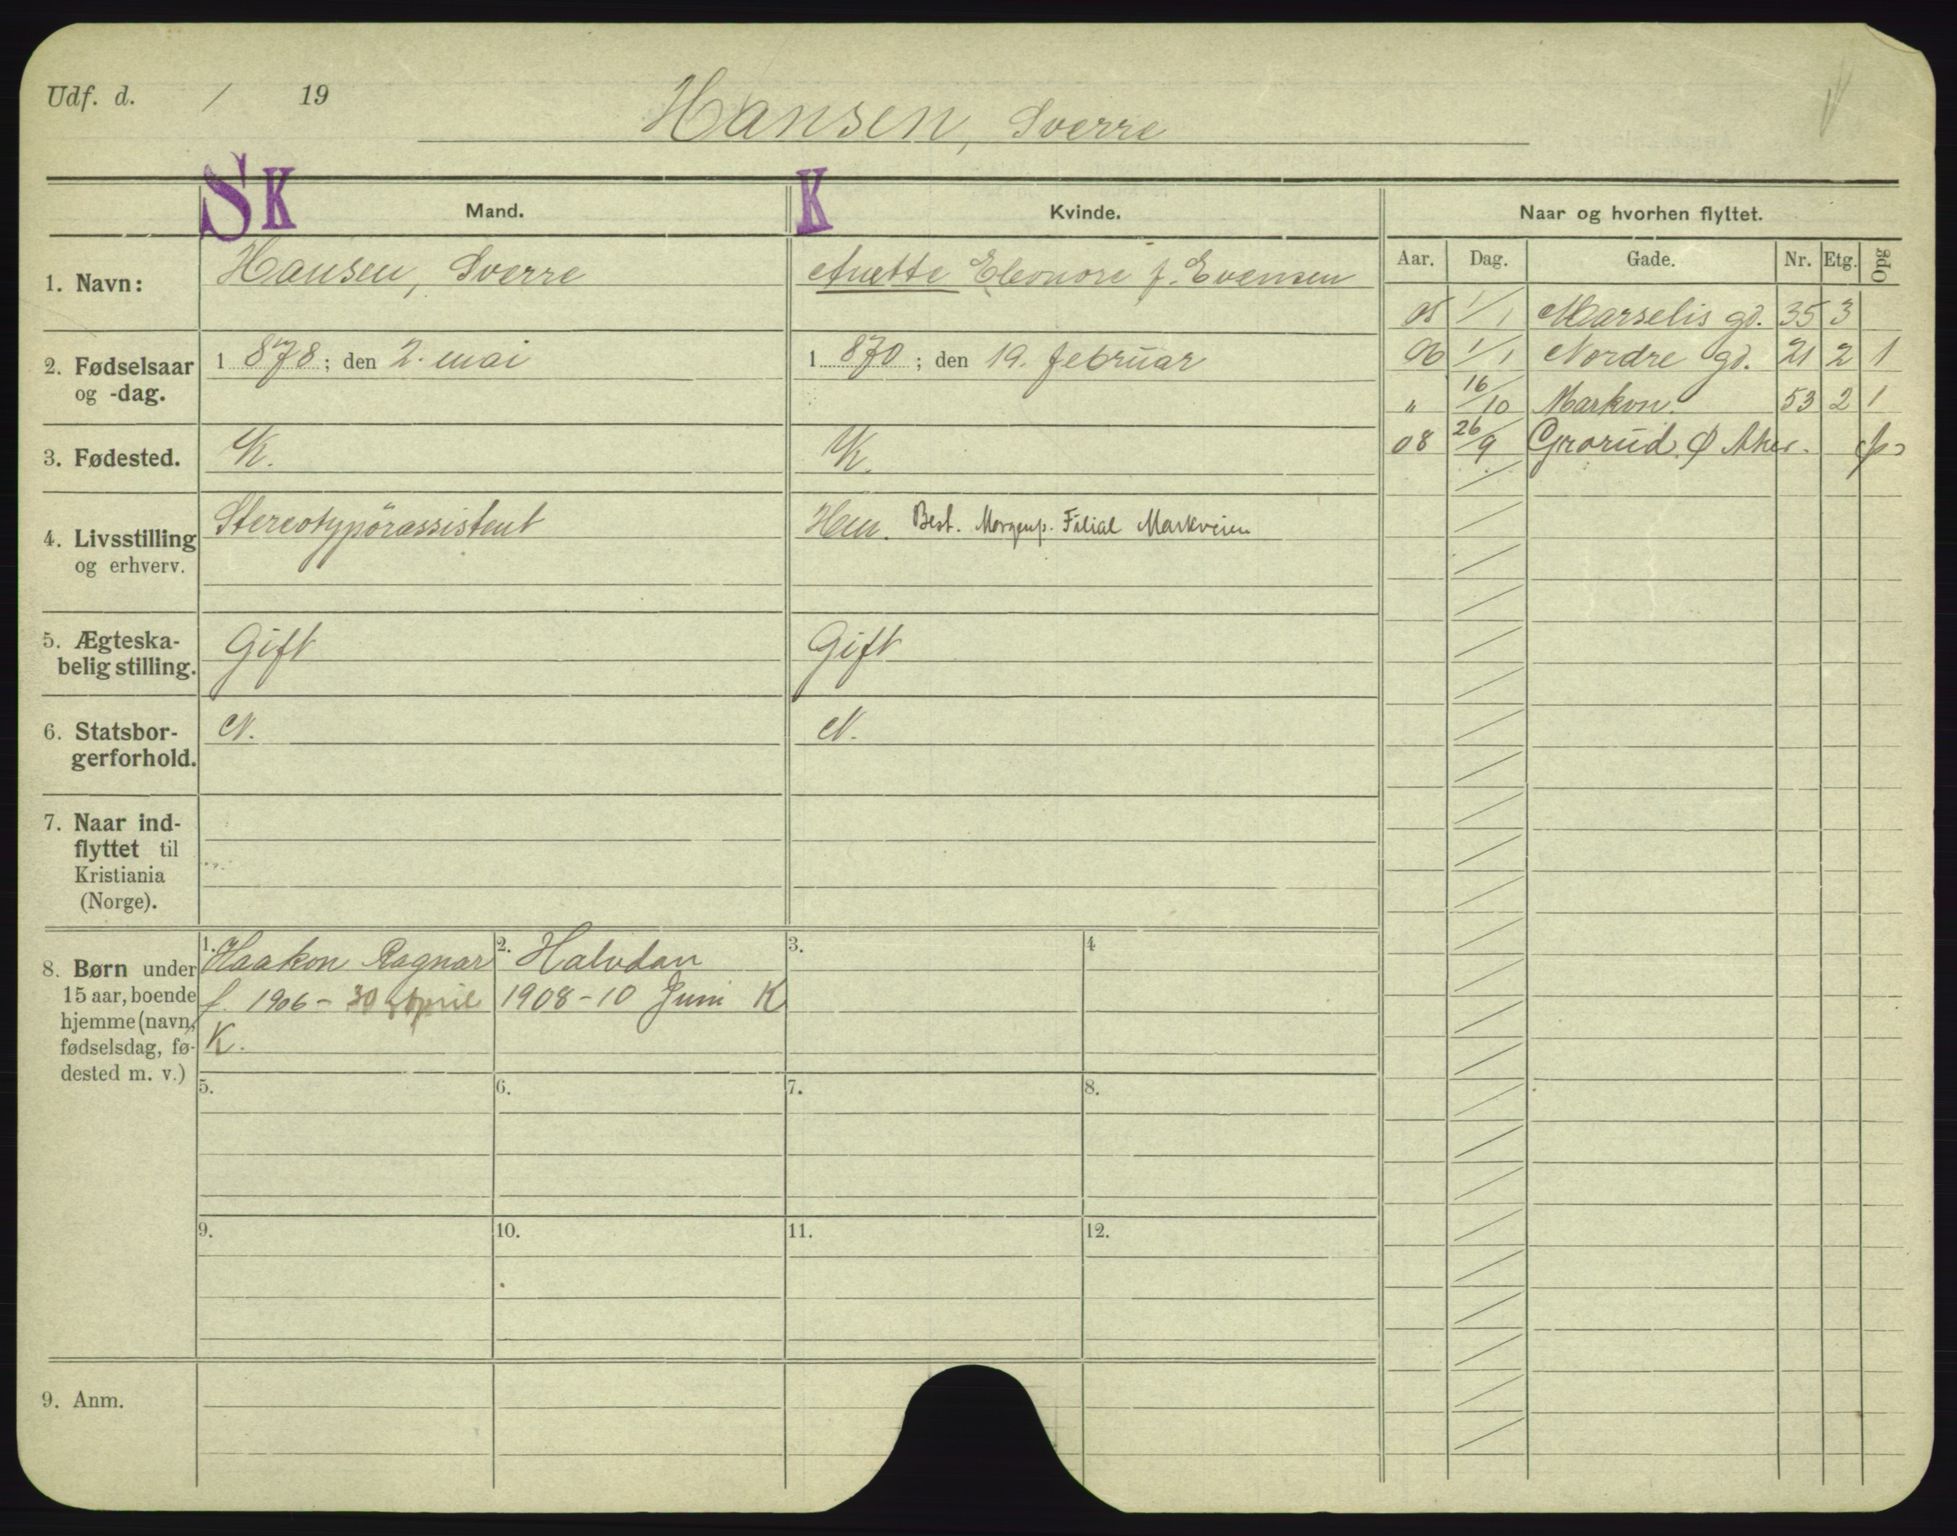 Udf. d. / 19
Hansen, Sverre
SK Mand. K Kvinde. Naar og hvorhen flyttet.
Aar. Dag. Gade. Nr. Etg. Opg
1. Navn: Hansen, Sverre
Anette Eleonore f. Evensen
05 1/1 Marselis gd. 35 3
06 1/1 Nordre gd. 21 2 1
" 16/10 Markvn. 53 2 1
08 26/9 Grorud. Ø Aker.
2. Fødselsaar og -dag.
1 878; den 2. mai
1 870; den 19. februar
3. Fødested. K. K.
4. Livsstilling og erhverv.
Stereotypörassistent
Hm. Best. Morgenp. Filial Markveien
5. Ægteska-
belig stilling.
Gift Gift
6. Statsbor-
gerforhold.
N. N.
7. Naar ind-
flyttet til
Kristiania
(Norge).
8. Børn under
15 aar, boende
hjemme (navn,
fødselsdag, fø-
dested m. v.)
1. Haakon Ragnar
f. 1906 - 30 april
K.
2. Halvdan
1908 - 10 Juni K
3. 4
5. 6. 7. 8.
9. 10. 11. 12.
9. Anm.